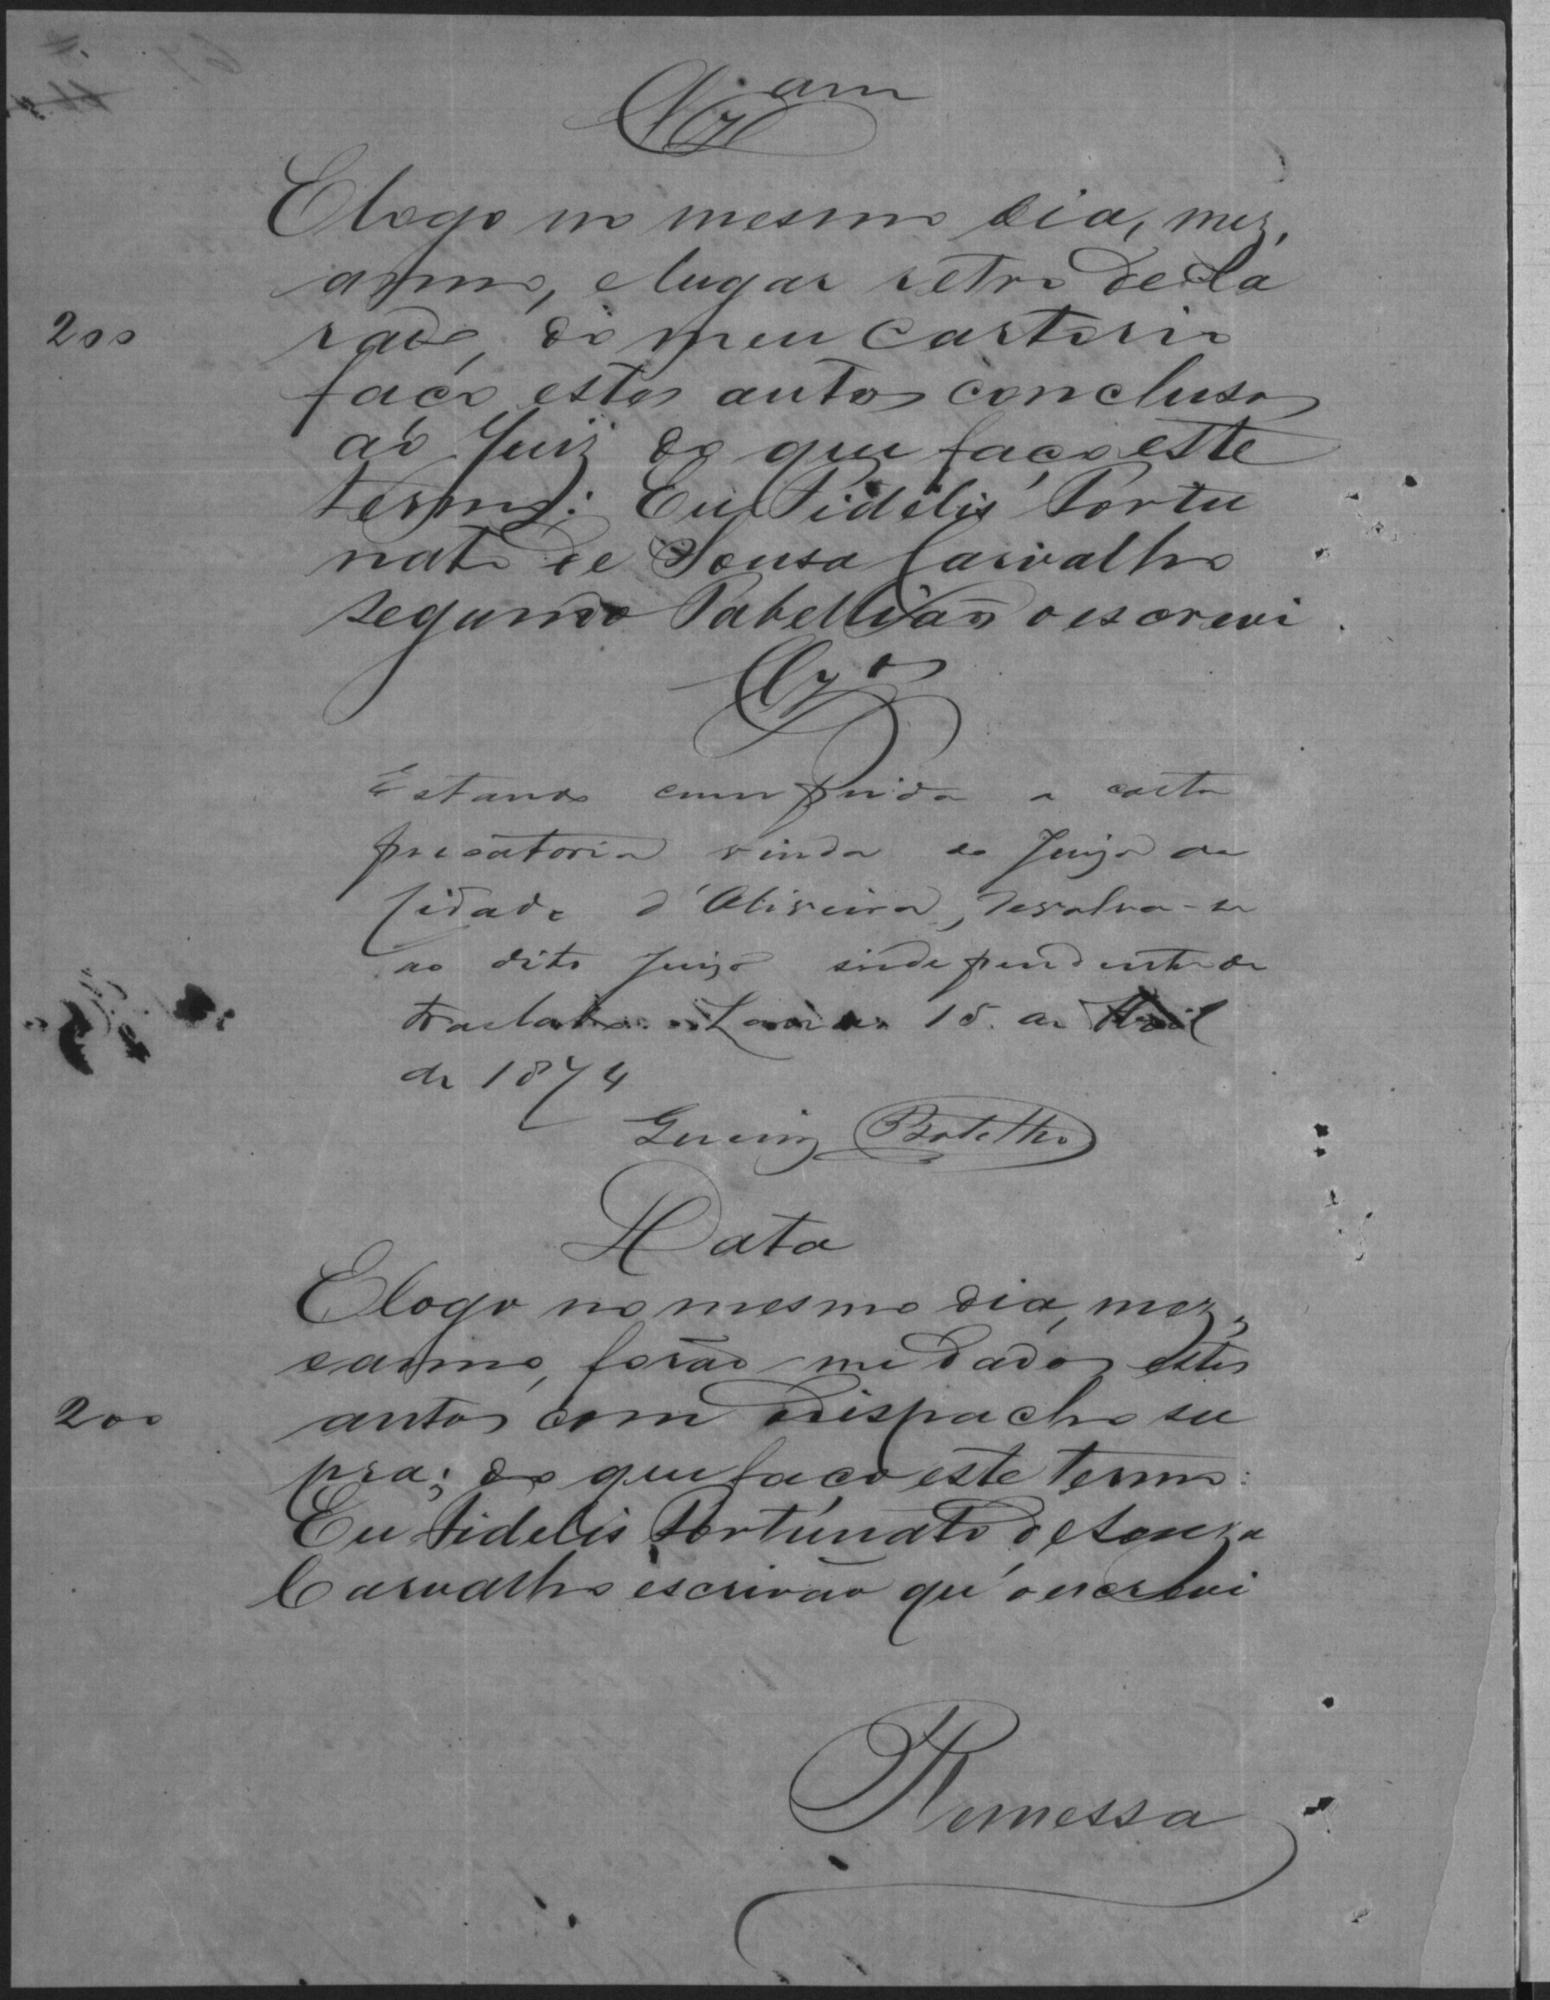 E logo no mesmo dia, mez,
anno, e lugar retro decla
200
rado, do meu cartorio
faço estes autos conclusos
ao Juiz do que faço este
termo: Eu Fidelis Fortu
nato de Sousa Carvalho
segundo Tabellião o escrevi
Estando cumprida a carta
precatoria vinda do Juizo da
Cidade d'Oliveira, devolva-se
ao dito Juizo independente de
traslado. 15 de Abril
de 1874
Botelho
Data
E logo no mesmo dia, mez,
e anno, forão me dados estes
200
autos com dispacho su
pra; do que faço este termo:
Eu Fidelis Fortunato de Souza
Carvalho escrivão qu'o escrevi
Remessa